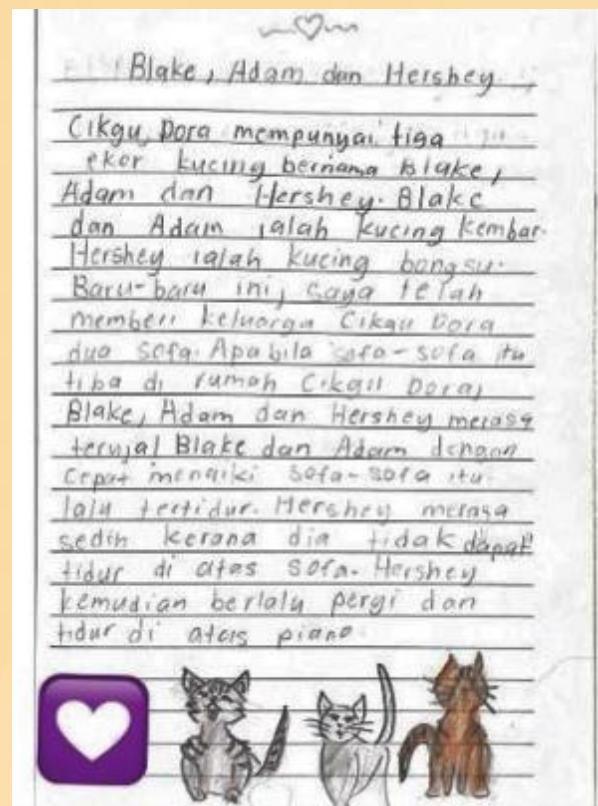 Blake, Adam dan Hershey
Cikgu Dora mempunyai tiga
ekor kucing bernama Blake,
Adam dan Hershey. Blake
dan Adam ialah kucing kembar.
Hershey ialah kucing bongsu.
Baru-baru ini, saya telah
memberi keluarga Cikgu Dora
dua sofa. Apabila sofa-sofa itu
tiba di rumah Cikgu Dora,
Blake, Adam dan Hershey merasa
teruja! Blake dan Adam dengan
cepat menaiki sofa-sofa itu
lalu tertidur. Hershey merasa
sedih kerana dia tidak dapat
tidur di atas sofa. Hershey
kemudian berlalu pergi dan
tidur di atas piano.